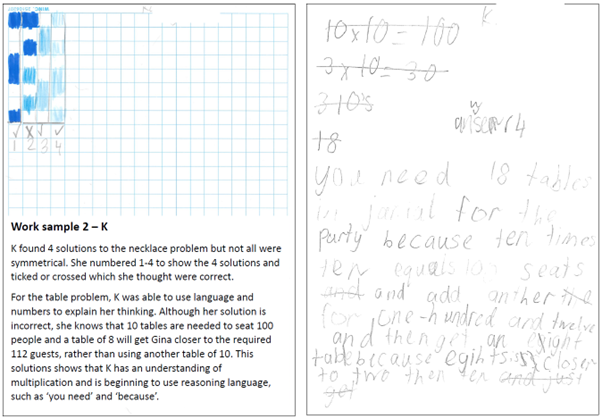 ✓ X ✓ ✓
1 2 3 4
Work sample 2 – K
K found 4 solutions to the necklace problem but not all were
symmetrical. She numbered 1-4 to show the 4 solutions and
ticked or crossed which she thought were correct.
For the table problem, K was able to use language and
numbers to explain her thinking. Although her solution is
incorrect, she knows that 10 tables are needed to seat 100
people and a table of 8 will get Gina closer to the required
112 guests, rather than using another table of 10. This
solutions shows that K has an understanding of
multiplication and is beginning to use reasoning language,
such as ‘you need’ and ‘because’.
K
10 x 10 = 100
3 x 10 = 30
3 10's
18
you need 18 tables
in for the
Party because ten times
ten equals seats
and and add anther
for one-hundred and twelve
and then get an
because closer
to two then ten and just
get